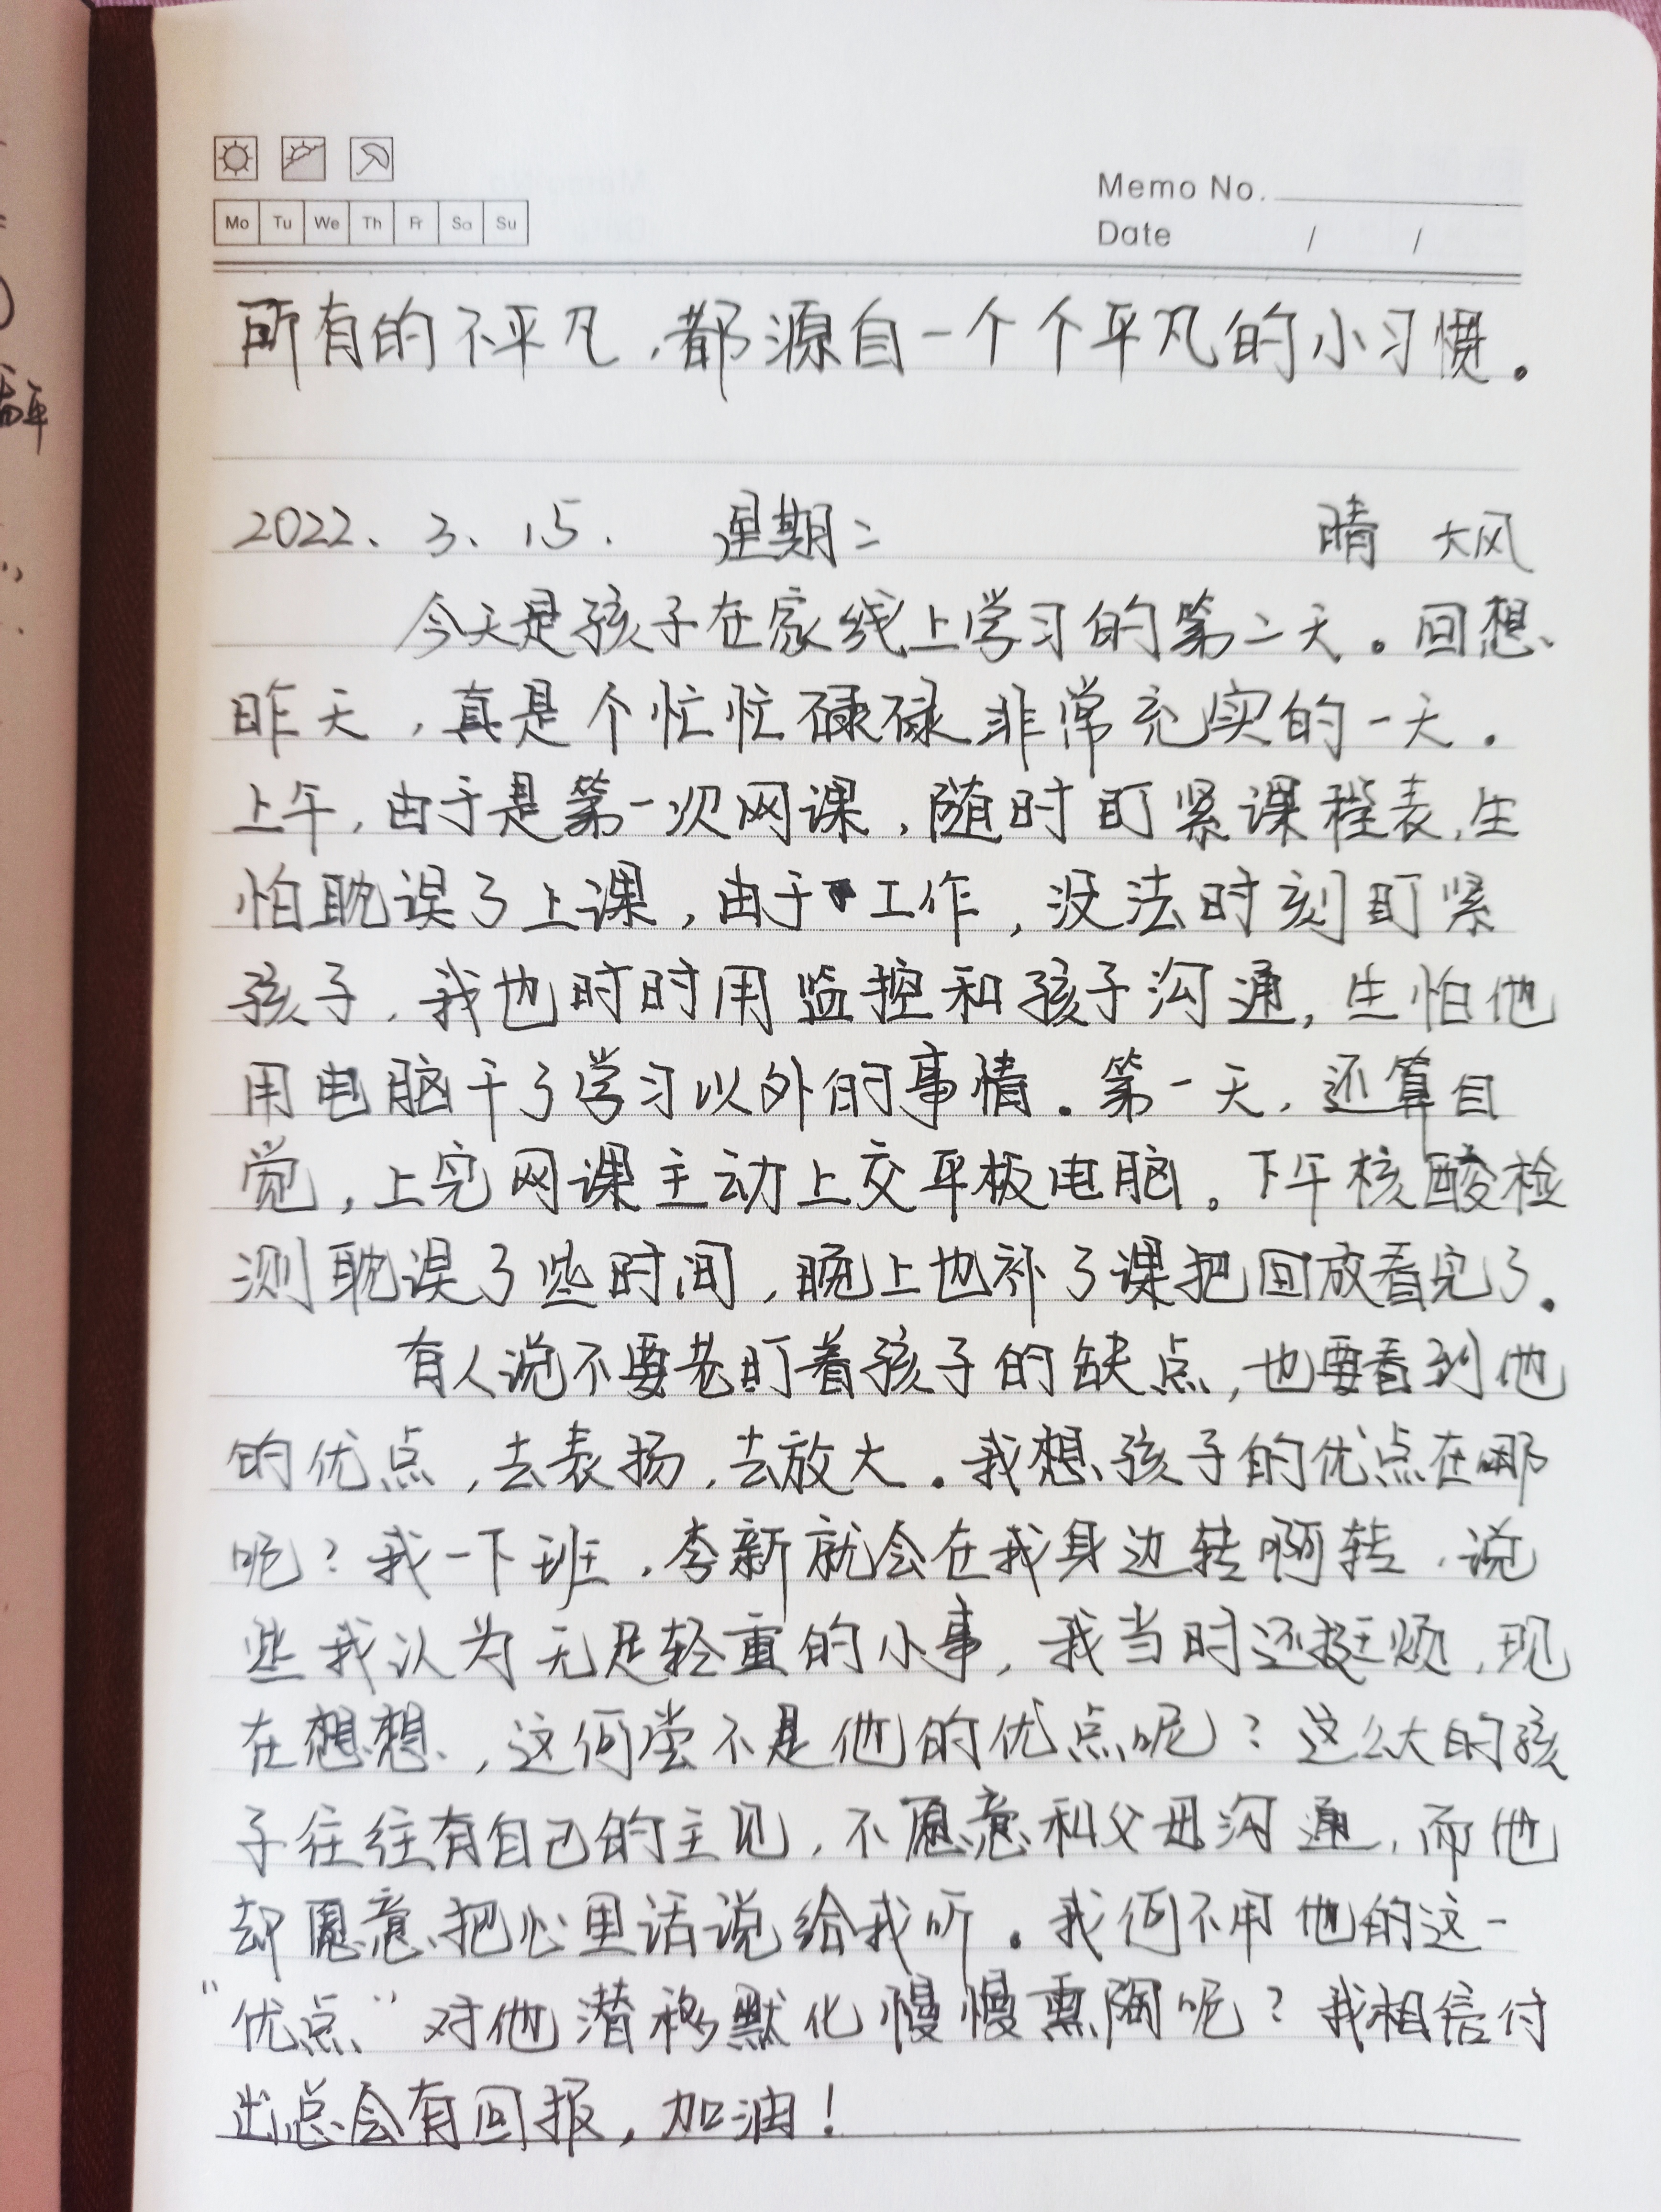 Memo No.
Mo Tu We Th Fr Sa Su
Date / /
所有的不平凡，都源自一个个平凡的小习惯。
2022、3、15. 星期二 晴 大风
今天是孩子在家线上学习的第二天。回想
昨天，真是个忙忙碌碌非常充实的一天。
上午，由于是第一次网课，随时盯紧课程表，生
怕耽误了上课，由于工作，没法时刻盯紧
孩子，我也时时用监控和孩子沟通，生怕他
用电脑干了学习以外的事情。第一天，还算自
觉，上完网课主动上交平板电脑。下午核酸检
测耽误了些时间，晚上也补了课把回放看完了。
有人说不要老盯着孩子的缺点，也要看到他
的优点，去表扬，去放大。我想孩子的优点在哪
呢？我一下班，李新就会在我身边转啊转，说
些我认为无足轻重的小事，我当时还挺烦，现
在想想，这何尝不是他的优点呢？这么大的孩
子往往有自己的主见，不愿意和父母沟通，而他
却愿意把心里话说给我听。我何不用他的这一
“优点”对他潜移默化慢慢熏陶呢？我相信付
出总会有回报，加油！